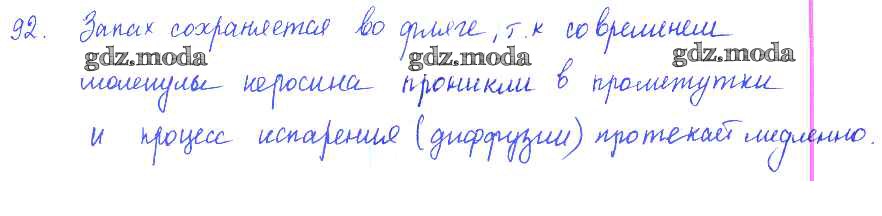 92. Запах сохраняется во фляге, т.к со временем
gdz.moda gdz.moda gdz.moda
молекулы керосина проникли в промежутки
и процесс испарения (диффузии) протекает медленно.